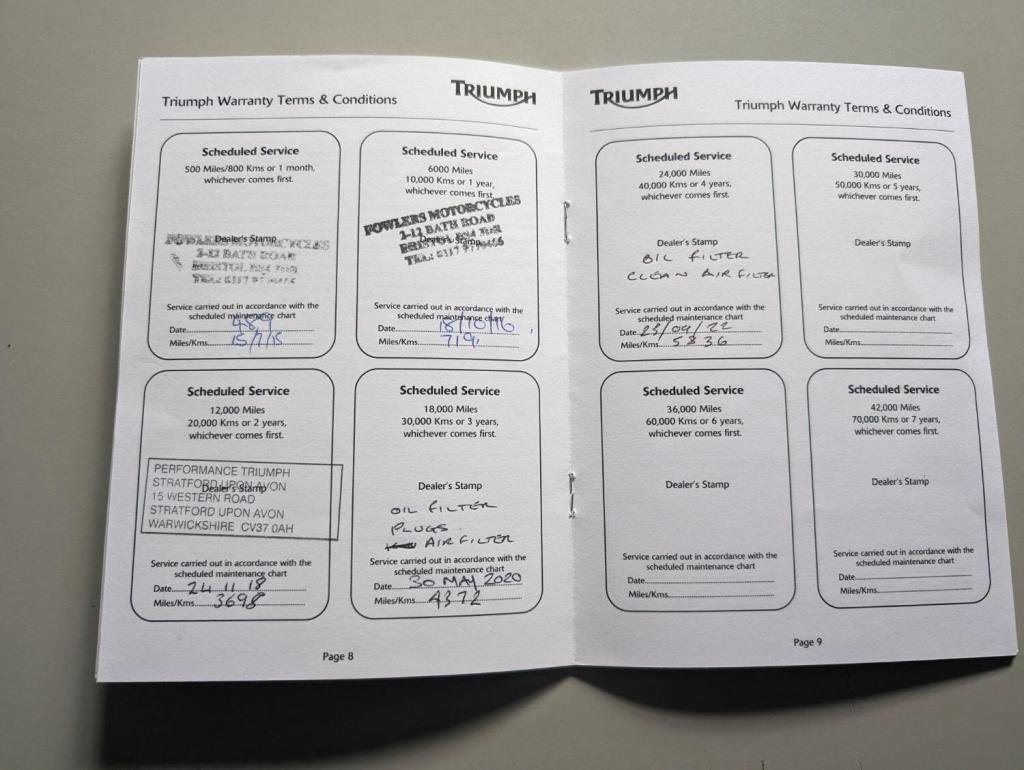 Triumph Warranty Terms & Conditions
TRIUMPH
Scheduled Service
500 Miles/800 Kms or 1 month,
whichever comes first.
Dealer's Stamp
FOWLERS MOTORCYCLES
2-12 BATH ROAD
BRISTOL BS4
TEL: 0117
Service carried out in accordance with the
scheduled maintenance chart
Date
Miles/Kms 15/7/15
Scheduled Service
6000 Miles
10,000 Kms or 1 year,
whichever comes first.
FOWLERS MOTORCYCLES
2-12 BATH ROAD
BRISTOL BS4
Dealer's Stamp
TEL: 0117
Service carried out in accordance with the
scheduled maintenance chart
Date 18/10/16
Miles/Kms
Scheduled Service
12,000 Miles
20,000 Kms or 2 years,
whichever comes first.
PERFORMANCE TRIUMPH
STRATFORD UPON AVON
Dealer's Stamp
15 WESTERN ROAD
STRATFORD UPON AVON
WARWICKSHIRE CV37 0AH
Service carried out in accordance with the
scheduled maintenance chart
Date 24 11 18
Miles/Kms 3698
Scheduled Service
18,000 Miles
30,000 Kms or 3 years,
whichever comes first.
Dealer's Stamp
OIL FILTER
PLUGS
AIR FILTER
Service carried out in accordance with the
scheduled maintenance chart
Date 30 MAY 2020
Miles/Kms 4372
Page 8
TRIUMPH
Triumph Warranty Terms & Conditions
Scheduled Service
24,000 Miles
40,000 Kms or 4 years,
whichever comes first.
Dealer's Stamp
OIL FILTER
CLEAN AIR FILTER
Service carried out in accordance with the
scheduled maintenance chart
Date 23/04/22
Miles/Kms 5836
Scheduled Service
30,000 Miles
50,000 Kms or 5 years,
whichever comes first.
Dealer's Stamp
Service carried out in accordance with the
scheduled maintenance chart
Date
Miles/Kms
Scheduled Service
36,000 Miles
60,000 Kms or 6 years,
whichever comes first.
Dealer's Stamp
Service carried out in accordance with the
scheduled maintenance chart
Date
Miles/Kms
Scheduled Service
42,000 Miles
70,000 Kms or 7 years,
whichever comes first.
Dealer's Stamp
Service carried out in accordance with the
scheduled maintenance chart
Date
Miles/Kms
Page 9